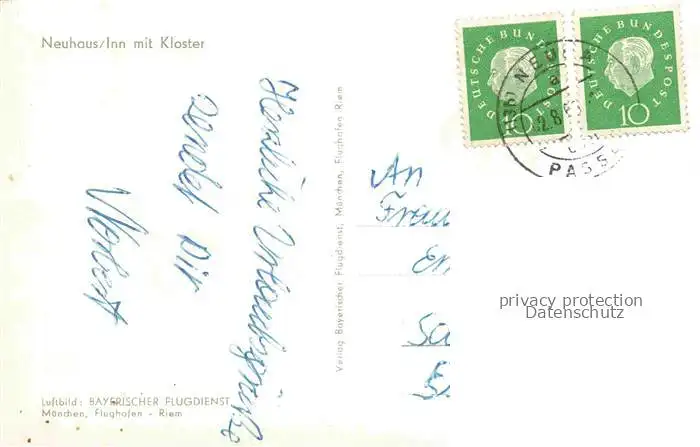 Neuhaus/Inn mit Kloster
Herzliche Urlaubsgrüße
sendet Dir
Luftbild: BAYERISCHER FLUGDIENST
München, Flughafen - Riem
Verlag Bayerischer Flugdienst, München, Flughafen Riem
DEUTSCHE BUNDESPOST
10
DEUTSCHE BUNDESPOST
10
PASS
An
Frau
privacy protection
Datenschutz